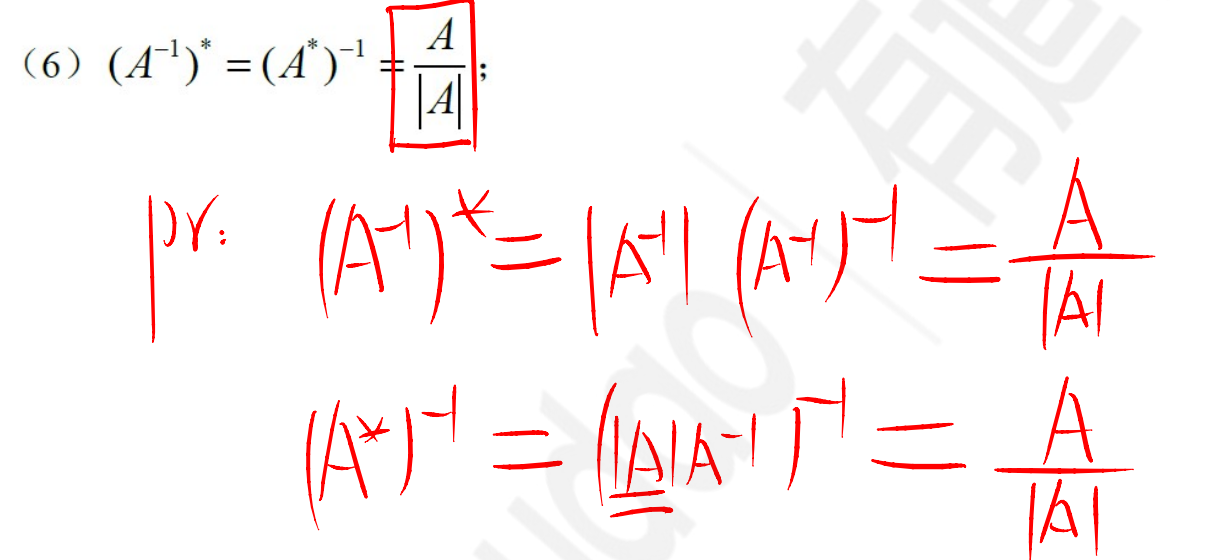 （6）(A⁻¹)* = (A*)⁻¹ = A/|A|；
pr: (A⁻¹)* = |A⁻¹| (A⁻¹)⁻¹ = A/|A|
(A*)⁻¹ = (|A|A⁻¹)⁻¹ = A/|A|
有道